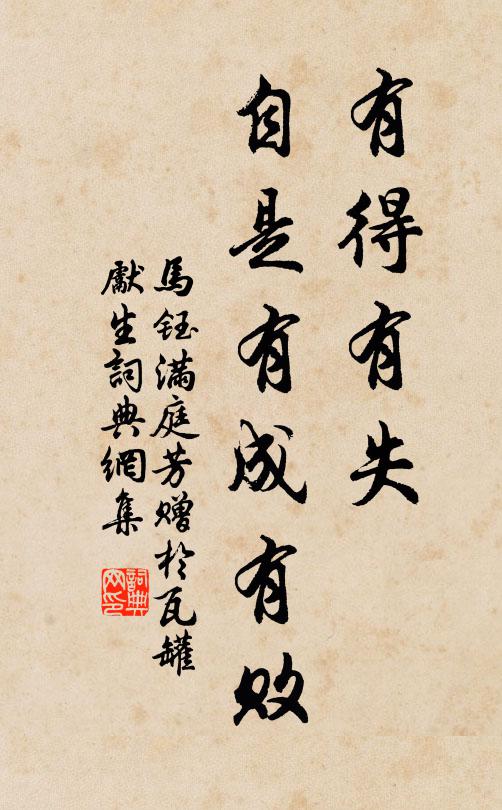 有得有失
自是有成有敗
馬鈺滿庭芳贈於瓦罐
獻生詞典網集
詞典
网印